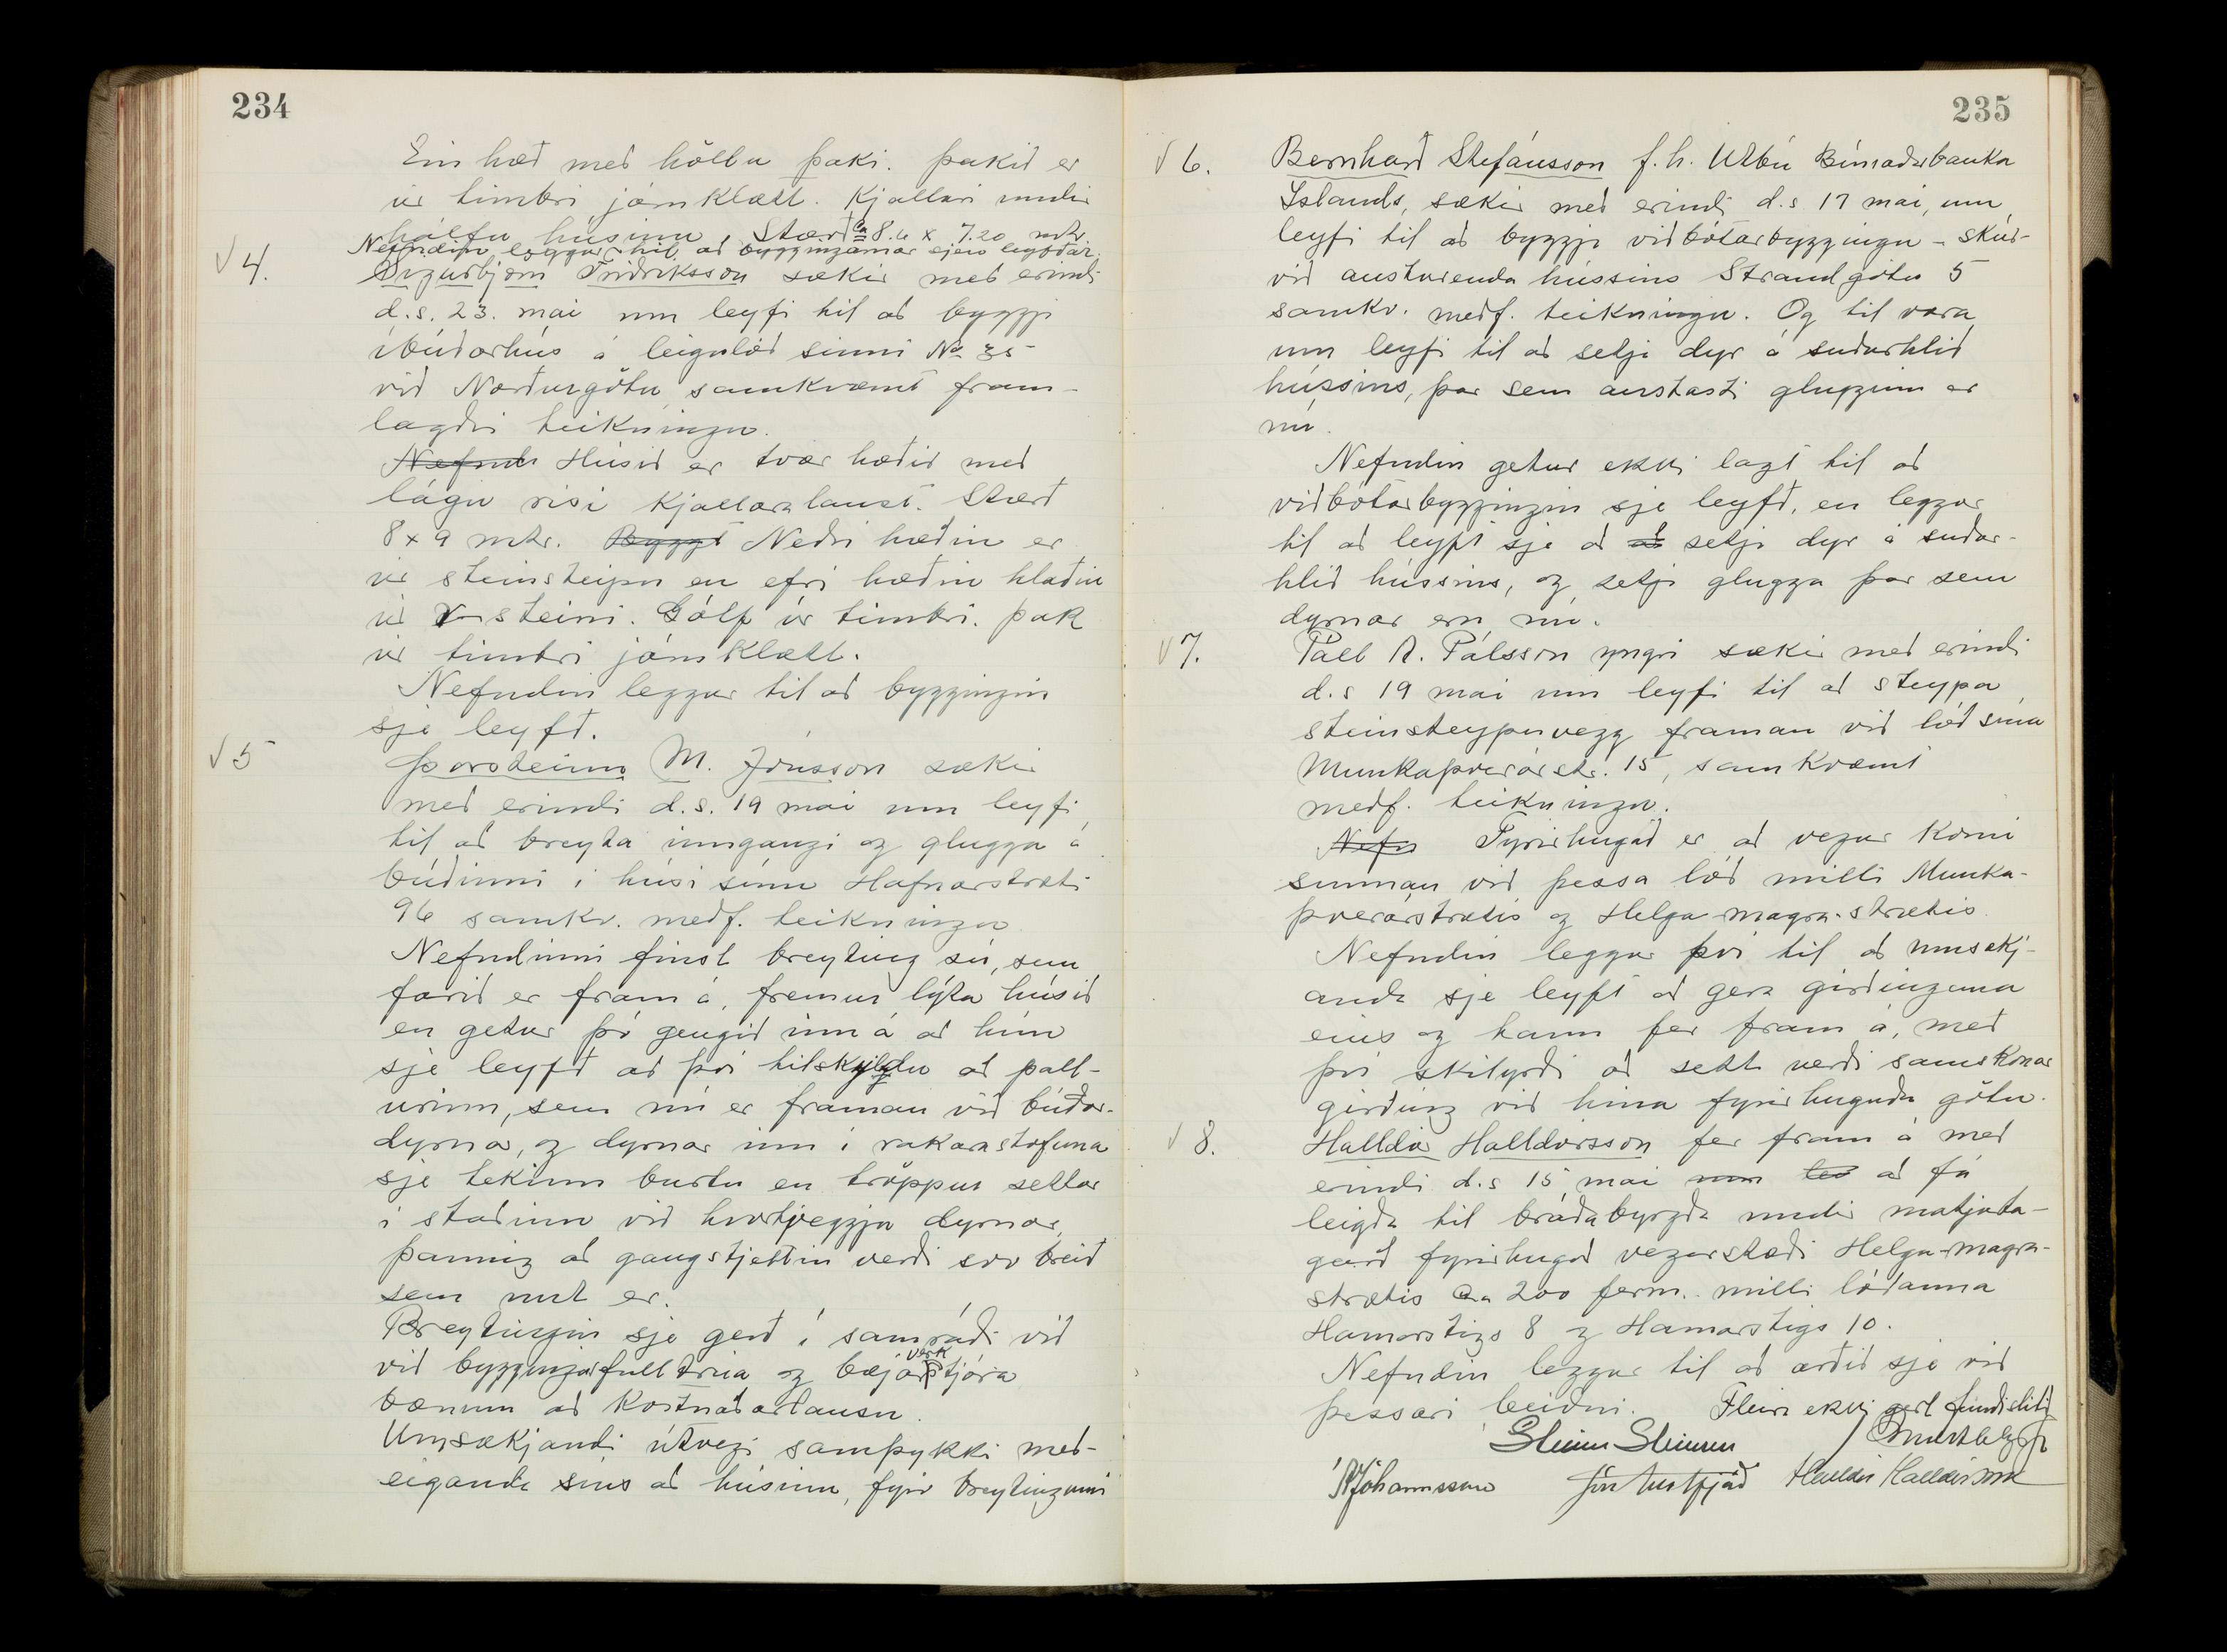 234
Ein hæð með höllu þaki. Þakið er
úr timbri járnklætt. Kjallari undir
hálfu húsinu. Stærð ca 8.0 x 7.20 mtr.
Nefndin leggur til að byggingarnar sjeu leyfðar.
√ 4. Sigurbjörn Friðriksson sækir með erindi
d.s. 23. maí um leyfi til að byggja
íbúðarhús á leigulóð sinni No 35
við Norðurgötu samkvæmt fram-
lagðri teikningu.
Nefndi Húsið er tvær hæðir með
lágu risi kjallaralaust. Stærð
8 x 9 mtr. Byggt Neðri hæðin er
úr steinsteipu en efri hæðin hlaðin
úr r-steini. Gólf úr timbri. Þak
úr timbri járnklætt.
Nefndin leggur til að byggingin
sje leyfð.
√ 5 Þorsteinn M. Jónsson sækir
með erindi d.s. 19 maí um leyfi
til að breyta inngangi og glugga á
búðinni í húsi sínu Hafnarstræti
96 samkv. meðf. teikningu
Nefndinni finst breyting sú, sem
farið er fram á, fremur lýta húsið
en getur þó gengið inn á að hún
sje leyfð að því tilskyldu að pall-
urinn, sem nú er framan við búðar-
dyrnar, og dyrnar inn í rakarastofuna
sje tekinn burtu en tröppur settar
í staðinn við hvortveggja dyrnar,
þannig að gangstjettin verði svo breið
sem unt er.
Breytingin sje gerð í samráði við
við byggingarfulltrúa og bæjarverkstjóra
bænum að kostnaðarlausu.
Umsækjandi útvegi samþykki með-
eiganda síns að húsinu, fyrir breytingunni
235
√ 6. Bernharð Stefánsson f.h. Útbú Búnaðarbanka
Islands, sækir með erindi d.s 17 maí, um
leyfi til að byggja viðbótarbyggingu - skúr -
við austurenda hússins Strandgötu 5
samkv. meðf. teikningu. Og til vara
um leyfi til að setja dyr á suðurhlið
hússins, þar sem austasti glugginn er
nú.
Nefndin getur ekki lagt til að
viðbótarbyggingin sje leyfð, en leggur
til að leyft sje að að setja dyr á suður-
hlið hússins, og setja glugga þar sem
dyrnar eru nú.
√ 7. Páll A. Pálsson yngri sækir með erindi
d.s 19 maí um leyfi til að steypa
steinsteypuvegg framan við lóð sína
Munkaþverárstr. 15, samkvæmt
meðf. teikningu.
Nefn Fyrirhugað er að vegur komi
sunnan við þessa lóð milli Munka-
þverárstrætis og Helga-magra-strætis
Nefndin leggur því til að umsækj-
anda sje leyft að gera girðinguna
eins og hann fer fram á, með
því skilyrði að sett verði samskonar
girðing við hina fyrirhuguðu götu.
√ 8. Halldór Halldórsson fer fram á með
erindi d.s 15 maí um lei að fá
leigða til bráðabyrgða undir matjurta-
garð fyrirhugað vegarstæði Helga-magra-
strætis ca 200 ferm. milli lóðanna
Hamarstigs 8 og Hamarstigs 10.
Nefndin leggur til að orðið sje við
þessari beiðni. Fleira ekki gert fundi slitið
Steinn Steinsen
Jóhannsson Jón Austfjörð Halldór Halldórsson